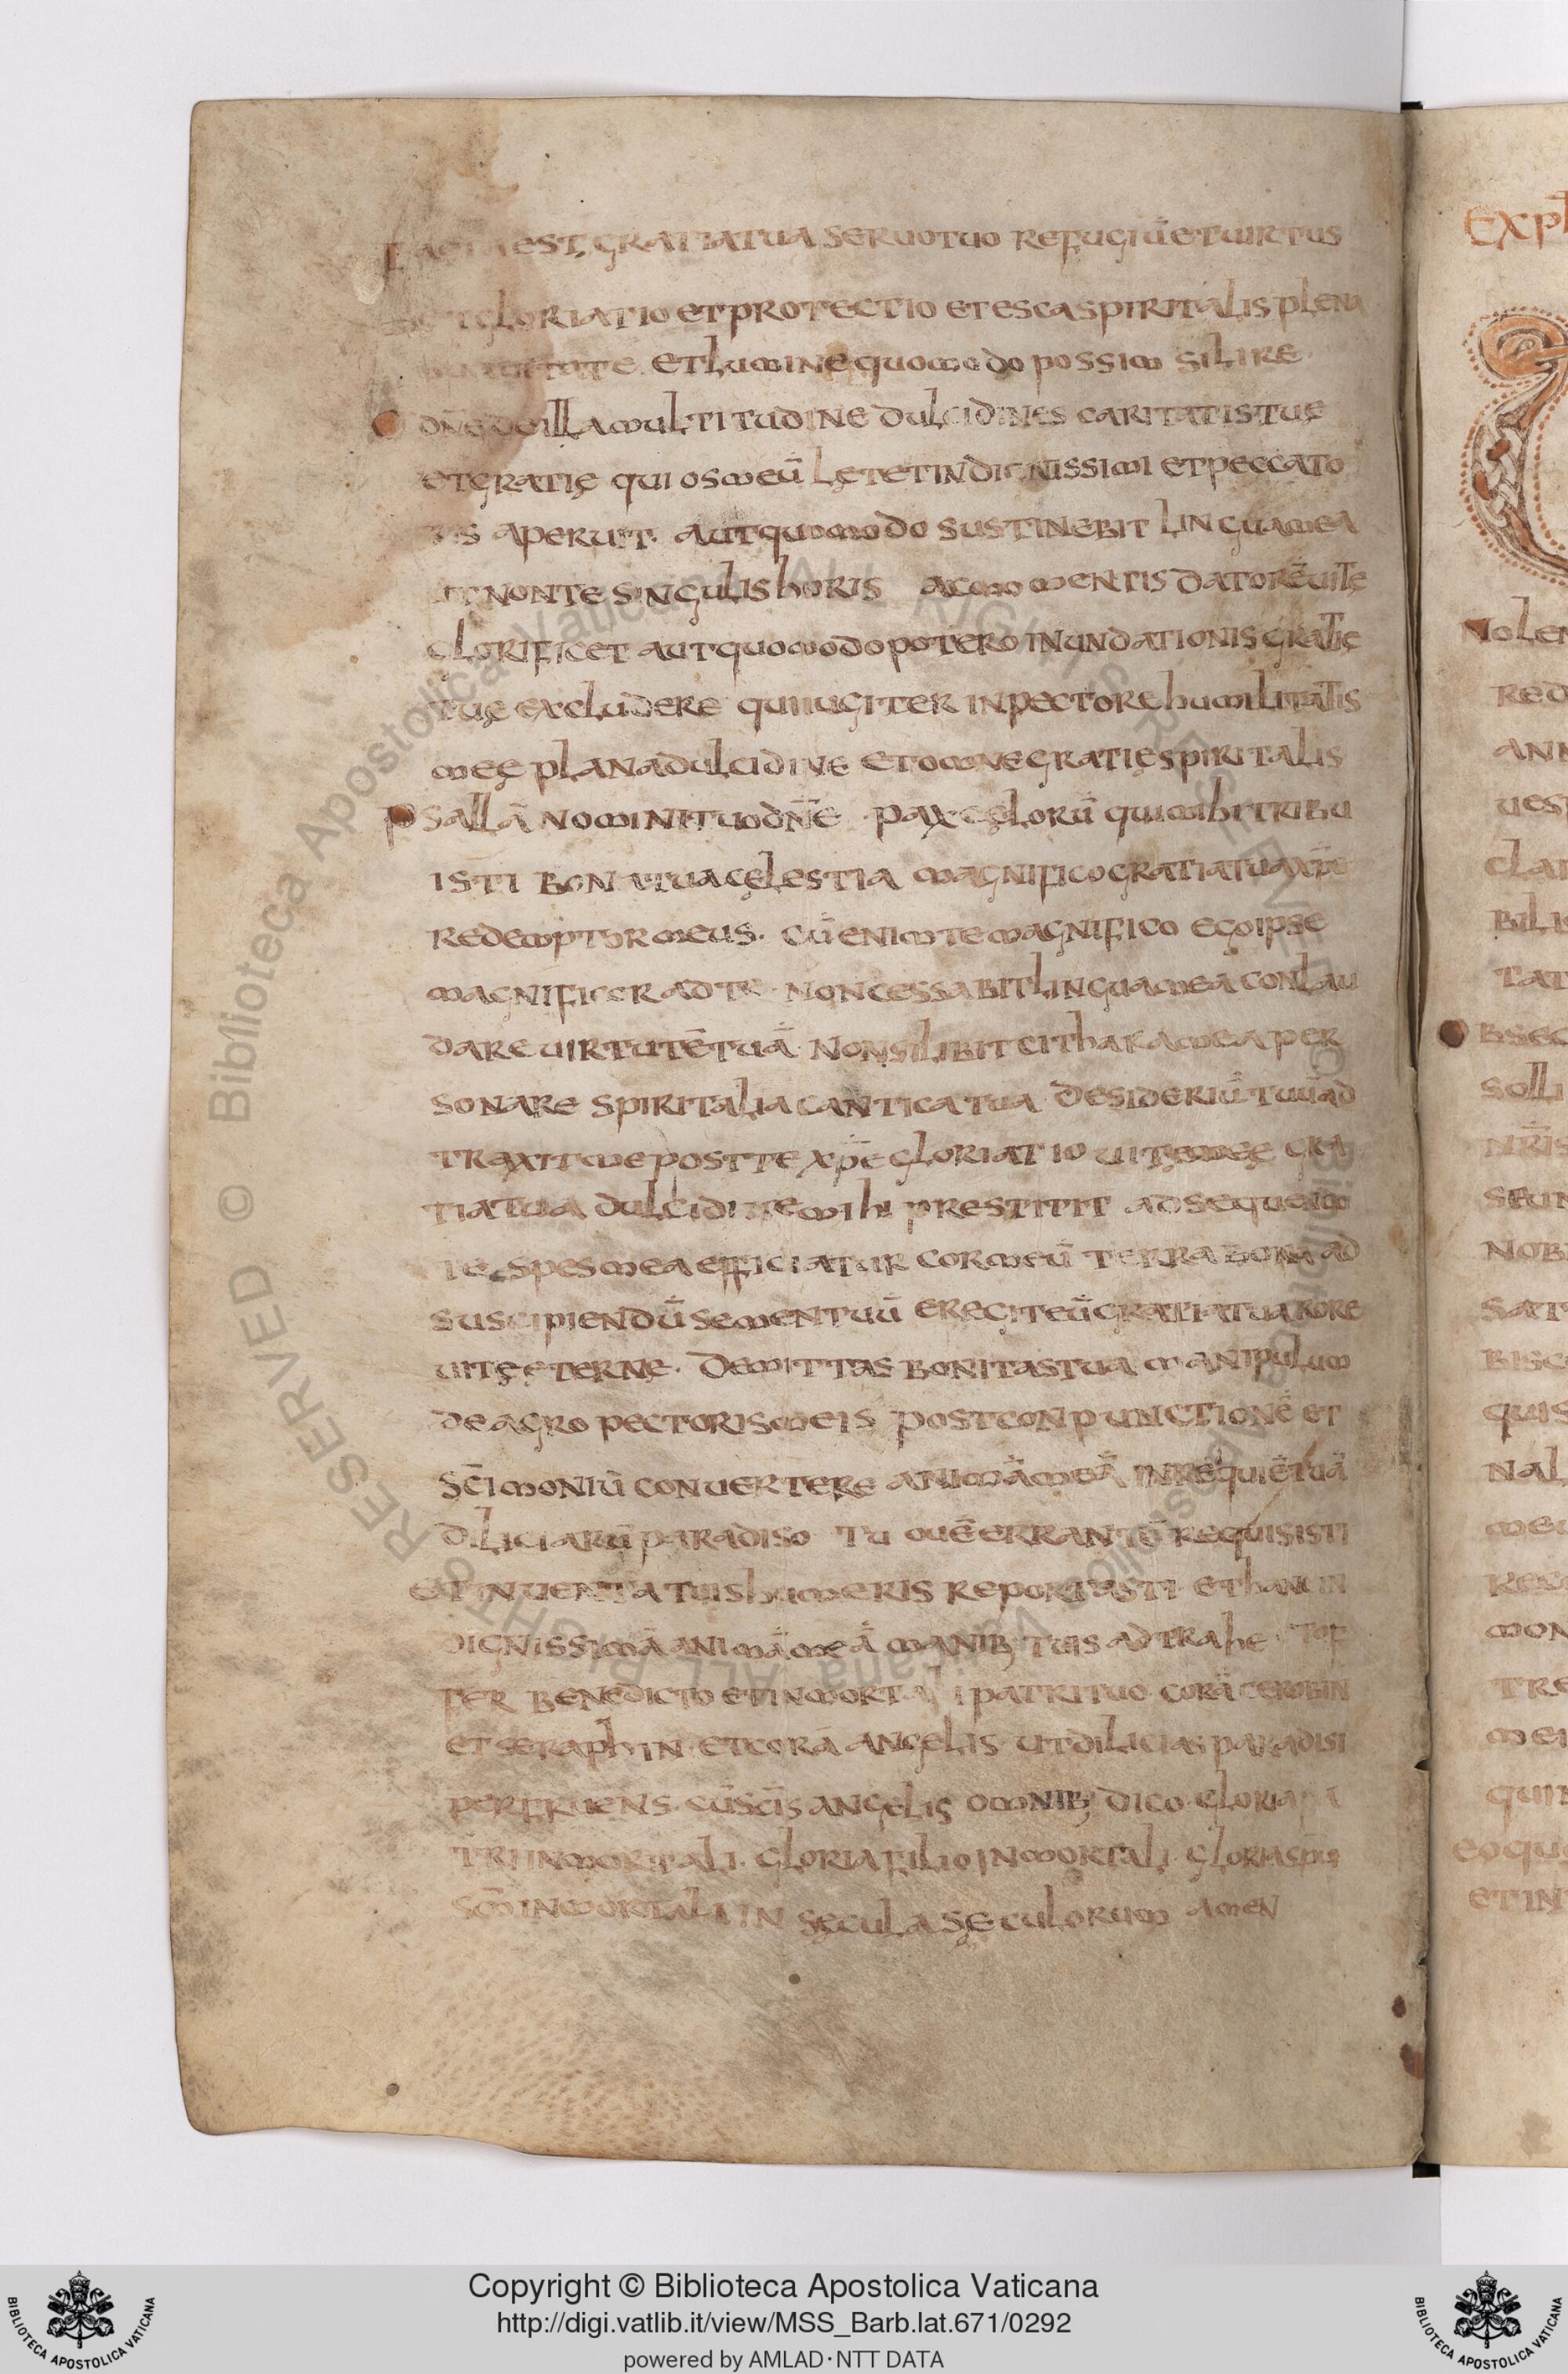 FACTA EST, GRATIA TUA SERUO TUO REFUGIŪ ET UIRTUS
ET GLORIATIO ET PROTECTIO ET ESCA SPIRITALIS PLENA
ET LUMINE QUOMODO POSSIM SILIRE
DÑE DE ILLA MULTITUDINE DULCIDINES CARITATIS TUĘ
ET GRATIĘ QUI OS MEŪ LĘTET INDIGNISSIMI ET PECCATO
RIS APERUIT. AUT QUOMODO SUSTINEBIT LINGUA MEA
UT NON TE SINGULIS HORIS AC MOMENTIS DATORĒ UITĘ
GLORIFICET AUT QUOMODO POTERO INUNDATIONIS GRATIĘ
TUĘ EXCLUDERE QUI IUGITER IN PECTORE HUMILITATIS
MEĘ PLANA DULCIDINE ET OMNE GRATIĘ SPIRITALIS
PSALLĀ NOMINI TUO DÑE PAX CĘLORŪ QUI MIHI TRIBU
ISTI BONA TUA CĘLESTIA MAGNIFICO GRATIA TUA XPE
REDEMPTOR MEUS. CŪ ENIM TE MAGNIFICO EGO IPSE
MAGNIFICOR AD TE NON CESSABIT LINGUA MEA CONLAU
DARE UIRTUTĒ TUĀ NON SILIBIT CITHARA MEA PER
SONARE SPIRITALIA CANTICA TUA DESIDERIŪ TUŪ AD
TRAXIT ME POST TE XPE GLORIATIO UITĘ MEĘ GRA
TIA TUA DULCIDINE MIHI PRESTITIT AD SEQUENM
TE SPES MEA EFFICIATUR COR MEŪ TERRA BONA AD
SUSCIPIENDŪ SEMEN TUŪ EREGITEŪ GRATIA TUA RORE
UITĘ ETERNĘ. DEMITTAS BONITAS TUA MANIPULUM
DE AGRO PECTORIS MEIS POST CONPUNCTIONĒ ET
SC̄IMONIŪ CONUERTERE ANIMĀ MEĀ IN REQUIĒ TUĀ
DILICIARŪ PARADISO TU OUĒ ERRANTĒ REQUISISTI
ET INUENTA TUIS HUMERIS REPORTASTI ET HANC IN
DIGNISSIMĀ ANIMĀ MEĀ MANIB; TUIS ADTRAHE
FER BENEDICTO ET INMORTALI PATRI TUO CORĀ CEROBIN
ET SERAPHIN ET CORĀ ANGELIS UT DILICIAS PARADISI
PERFRUENS CŪ SCĪS ANGELIS OMNIB; DICO GLORIA PA
TRI INMORTALI. GLORIA FILIO INMORTALI GLORIA SPUI
SCŌ INMORTALI IN SĘCULA SĘCULORUM AMEN
EXP
NOLE
RED
AN
UES
CLA
BILI
TAT
BSEC
SOLLI
NR̄IS
NOB
SAT
BISC
QUIS
NAL
MEU
MON
TRE
MEI
QUI
EOQU
ET IN
Copyright © Biblioteca Apostolica Vaticana
http://digi.vatlib.it/view/MSS_Barb.lat.671/0292
powered by AMLAD·NTT DATA